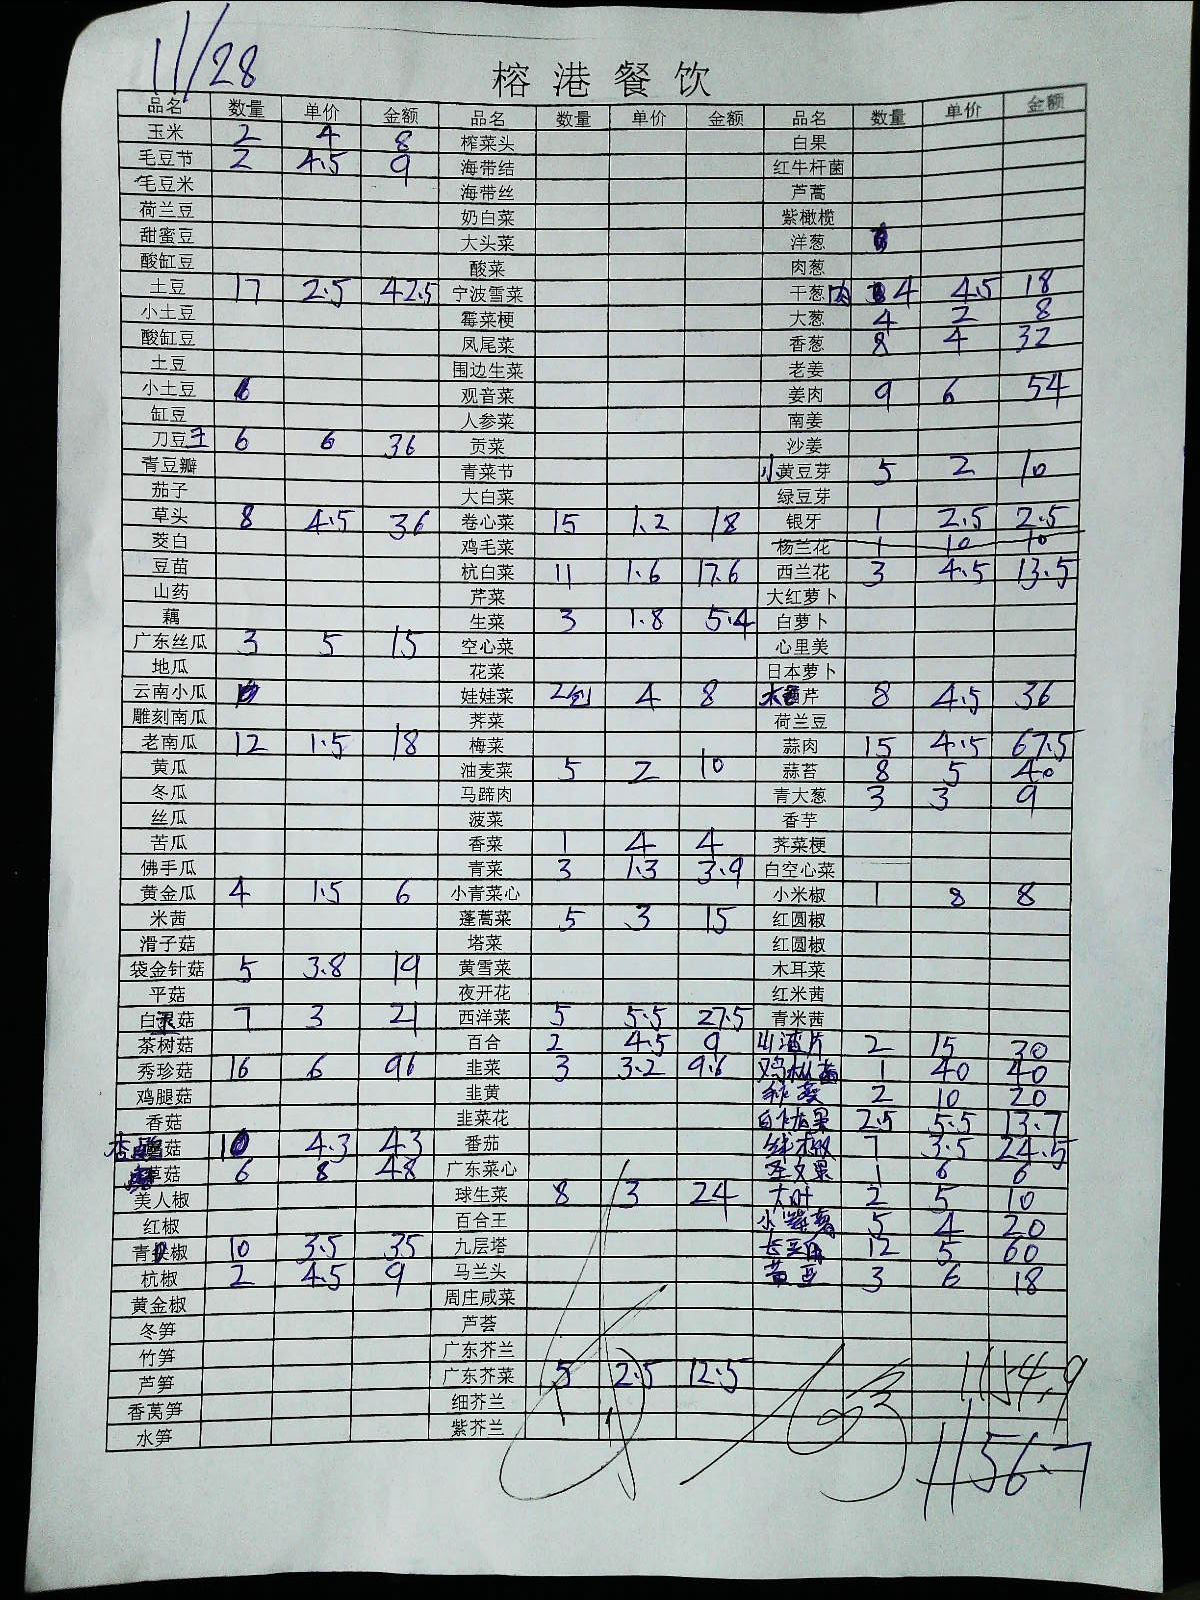 11/28
榕港餐饮
品名 数量 单价 金额 品名 数量 单价 金额 品名 数量 单价 金额
玉米 2 4 8 榨菜头 白果
毛豆节 2 4.5 9 海带结 红牛杆菌
毛豆米 海带丝 芦蒿
荷兰豆 奶白菜 紫橄榄
甜蜜豆 大头菜 洋葱
酸缸豆 酸菜 肉葱
土豆 17 2.5 42.5 宁波雪菜 干葱肉 4 4.5 18
小土豆 霉菜梗 大葱 4 2 8
酸缸豆 凤尾菜 香葱 8 4 32
土豆 围边生菜 老姜
小土豆 观音菜 姜肉 9 6 54
缸豆 人参菜 南姜
刀豆王 6 6 36 贡菜 沙姜
青豆瓣 青菜节 小黄豆芽 5 2 10
茄子 大白菜 绿豆芽
草头 8 4.5 36 卷心菜 15 1.2 18 银牙 1 2.5 2.5
茭白 鸡毛菜 杨兰花 1 10 10
豆苗 杭白菜 11 1.6 17.6 西兰花 3 4.5 13.5
山药 芹菜 大红萝卜
藕 生菜 3 1.8 5.4 白萝卜
广东丝瓜 3 5 15 空心菜 心里美
地瓜 花菜 日本萝卜
云南小瓜 娃娃菜 2包 4 8 芹 8 4.5 36
雕刻南瓜 荠菜 荷兰豆
老南瓜 12 1.5 18 梅菜 蒜肉 15 4.5 67.5
黄瓜 油麦菜 5 2 10 蒜苔 8 5 40
冬瓜 马蹄肉 青大葱 3 3 9
丝瓜 菠菜 香芋
苦瓜 香菜 1 4 4 荠菜梗
佛手瓜 青菜 3 1.3 3.9 白空心菜
黄金瓜 4 1.5 6 小青菜心 小米椒 1 8 8
米茜 蓬蒿菜 5 3 15 红圆椒
滑子菇 塔菜 红圆椒
袋金针菇 5 3.8 19 黄雪菜 木耳菜
平菇 夜开花 红米茜
白灵菇 7 3 21 西洋菜 5 5.5 27.5 青米茜
茶树菇 百合 2 4.5 9 山渣片 2 15 30
秀珍菇 16 6 96 韭菜 3 3.2 9.6 鸡枞菌 1 40 40
鸡腿菇 韭黄 秋葵 2 10 20
香菇 韭菜花 果 2.5 5.5 13.7
杏鲍菇 10 4.3 43 番茄 7 3.5 24.5
草菇 6 8 48 广东菜心 圣女果 1 6 6
美人椒 球生菜 8 3 24 大叶 2 5 10
红椒 百合王 小 5 4 20
青椒 10 3.5 35 九层塔 12 5 60
杭椒 2 4.5 9 马兰头 黄豆 3 6 18
黄金椒 周庄咸菜
冬笋 芦荟
竹笋 广东芥兰
芦笋 广东芥菜 5 2.5 12.5
香莴笋 细芥兰
水笋 紫芥兰
1154.9
1156.7